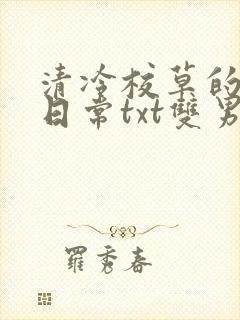 清冷校草的
日常txt雙男
羅秀春